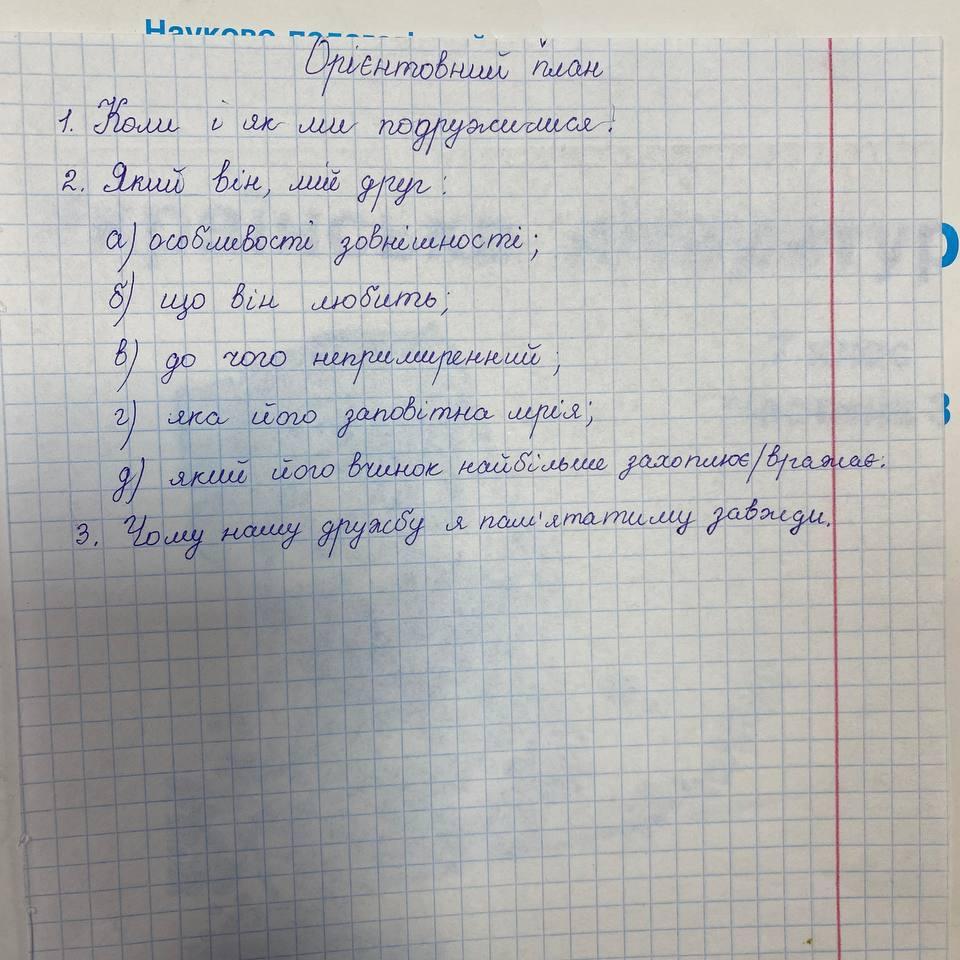 Науково
Орієнтовний план
1. Коли і як ми подружилися.
2. Який він, мій друг:
а) особливості зовнішності;
б) що він любить;
в) до чого непримиренний;
г) яка його заповітна мрія;
д) який його вчинок найбільше захоплює/вражає.
3. Чому нашу дружбу я пам'ятатиму завжди.